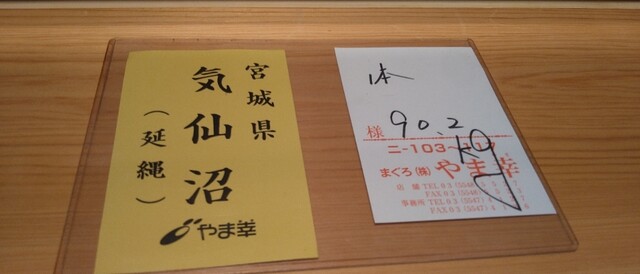 宮城県
気仙沼
（延縄）
やま幸
本
様
90.2
kg
ニ-103~117
まぐろ(株)やま幸
店舗 TEL 03(5548)
FAX 03(5548)
事務所 TEL 03(5547)
FAX 03(5547)